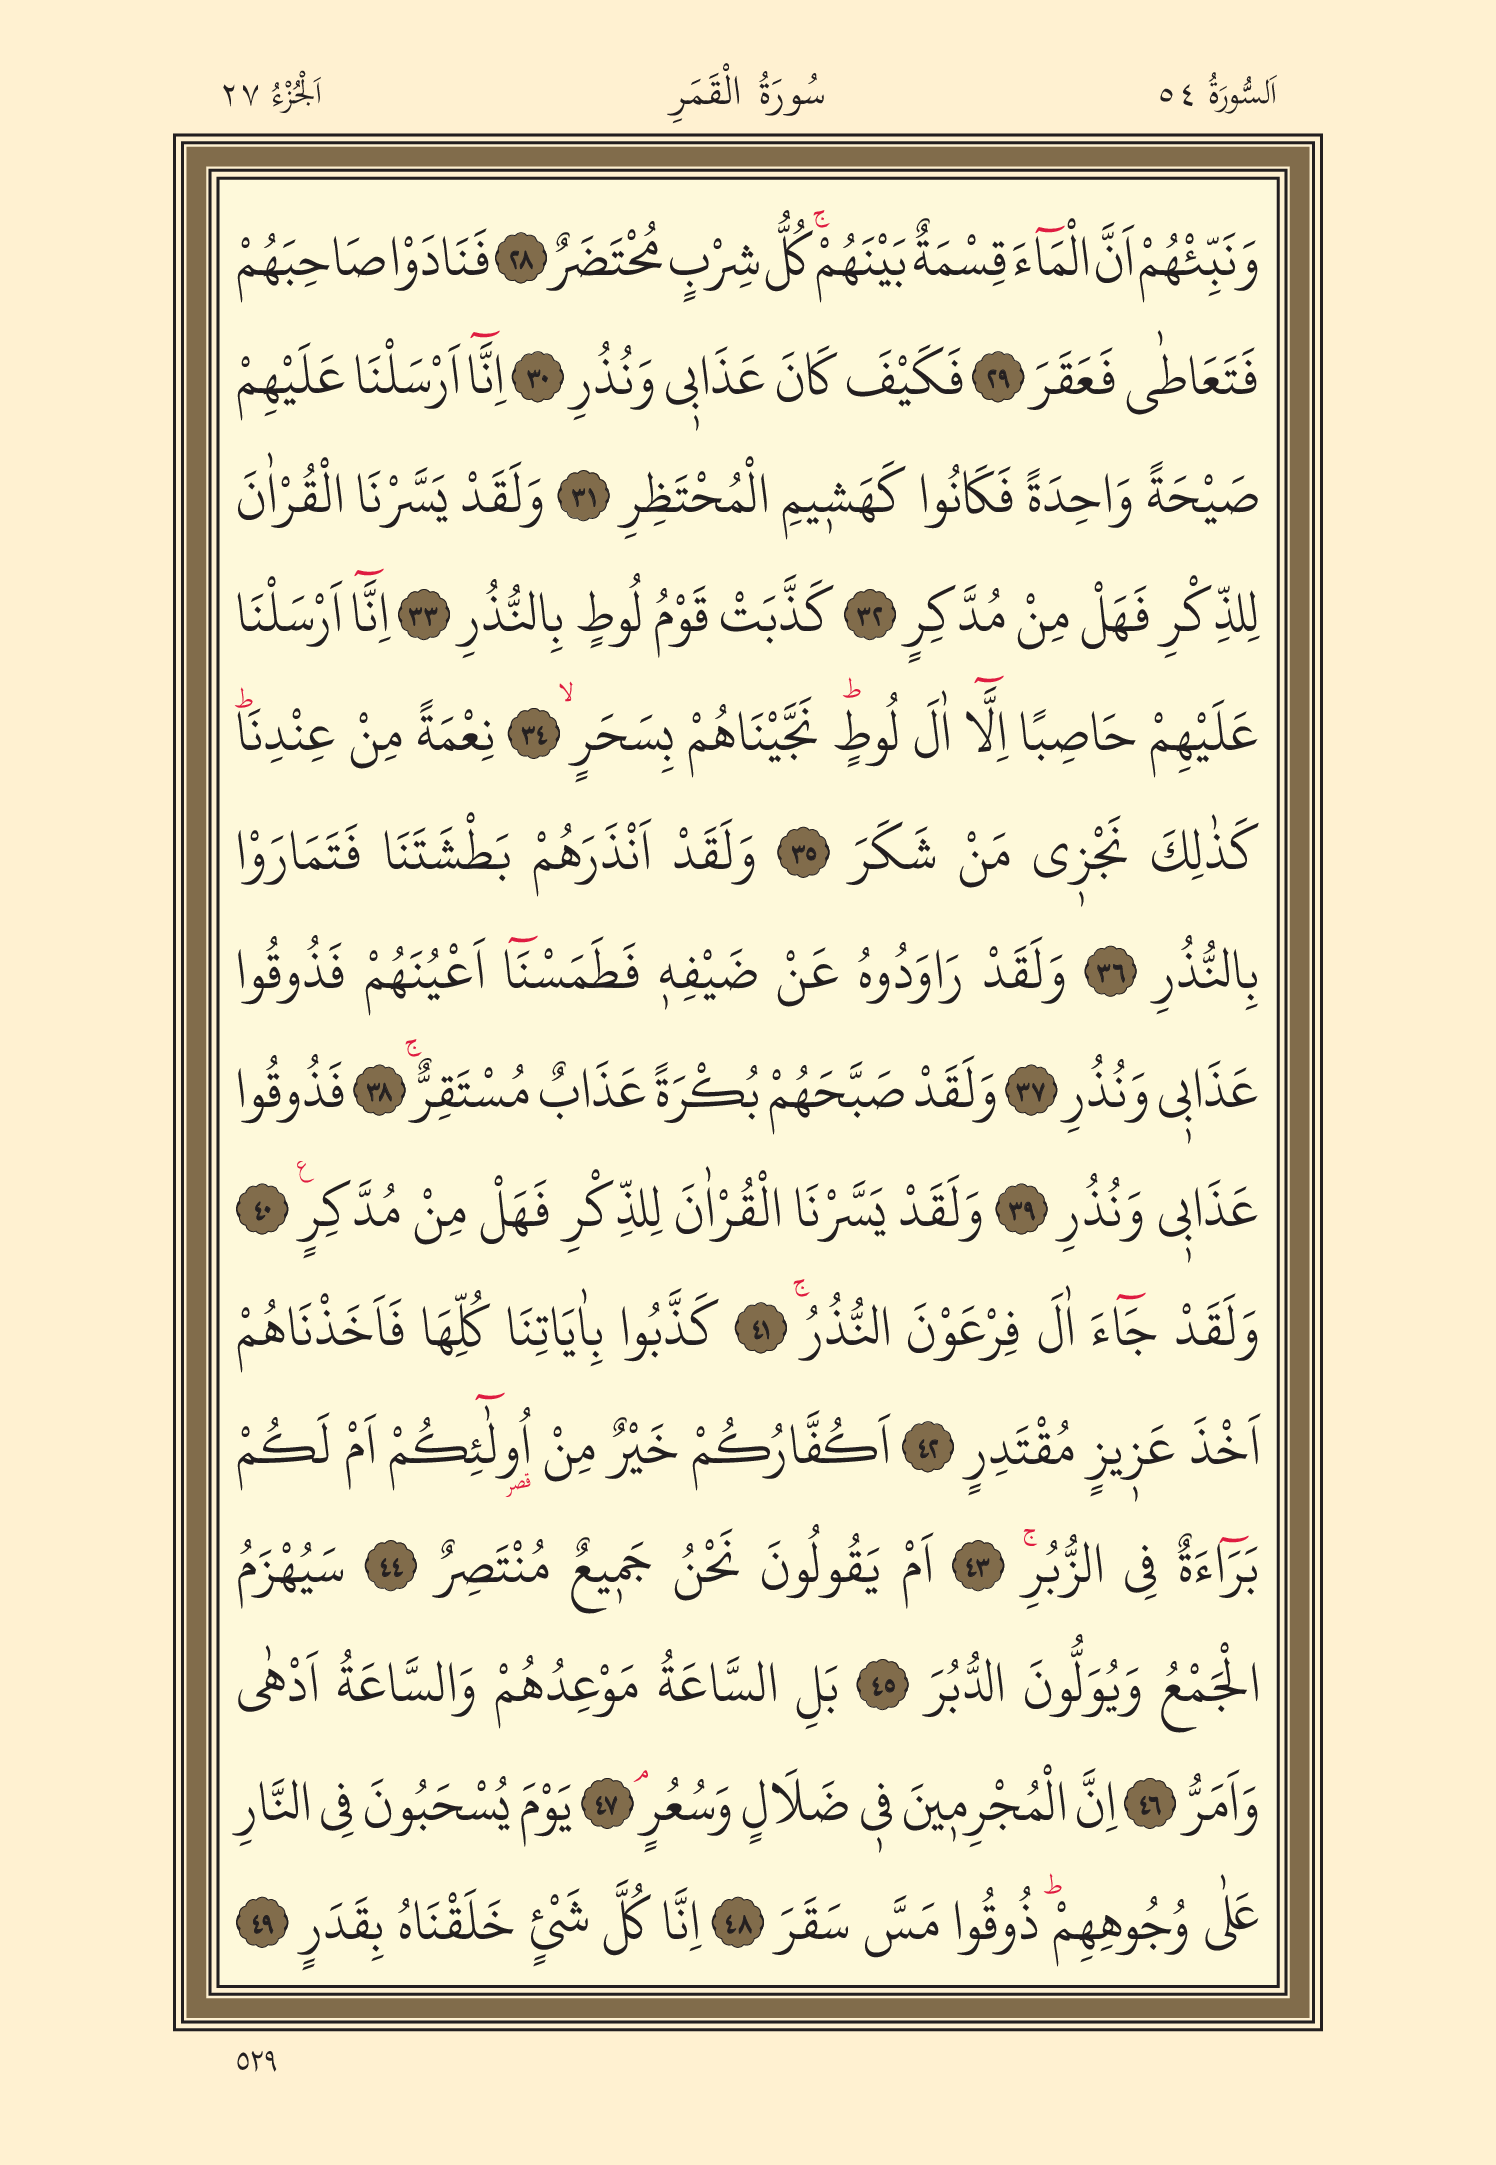 اَلسُّورَةُ ٥٤ سُورَةُ الْقَمَرِ اَلْجُزْءُ ٢٧
وَنَبِّئْهُمْ اَنَّ الْمَٓاءَ قِسْمَةٌ بَيْنَهُمْۚ كُلُّ شِرْبٍ مُحْتَضَرٌ ٢٨ فَنَادَوْا صَاحِبَهُمْ
فَتَعَاطٰى فَعَقَرَ ٢٩ فَكَيْفَ كَانَ عَذَابٖى وَنُذُرِ ٣٠ اِنَّٓا اَرْسَلْنَا عَلَيْهِمْ
صَيْحَةً وَاحِدَةً فَكَانُوا كَهَشٖيمِ الْمُحْتَظِرِ ٣١ وَلَقَدْ يَسَّرْنَا الْقُرْاٰنَ
لِلذِّكْرِ فَهَلْ مِنْ مُدَّكِرٍ ٣٢ كَذَّبَتْ قَوْمُ لُوطٍ بِالنُّذُرِ ٣٣ اِنَّٓا اَرْسَلْنَا
عَلَيْهِمْ حَاصِبًا اِلَّٓا اٰلَ لُوطٍؕ نَجَّيْنَاهُمْ بِسَحَرٍۙ ٣٤ نِعْمَةً مِنْ عِنْدِنَاؕ
كَذٰلِكَ نَجْزٖى مَنْ شَكَرَ ٣٥ وَلَقَدْ اَنْذَرَهُمْ بَطْشَتَنَا فَتَمَارَوْا
بِالنُّذُرِ ٣٦ وَلَقَدْ رَاوَدُوهُ عَنْ ضَيْفِهٖ فَطَمَسْنَٓا اَعْيُنَهُمْ فَذُوقُوا
عَذَابٖى وَنُذُرِ ٣٧ وَلَقَدْ صَبَّحَهُمْ بُكْرَةً عَذَابٌ مُسْتَقِرٌّۚ ٣٨ فَذُوقُوا
عَذَابٖى وَنُذُرِ ٣٩ وَلَقَدْ يَسَّرْنَا الْقُرْاٰنَ لِلذِّكْرِ فَهَلْ مِنْ مُدَّكِرٍ ع ٤٠
وَلَقَدْ جَٓاءَ اٰلَ فِرْعَوْنَ النُّذُرُۚ ٤١ كَذَّبُوا بِاٰيَاتِنَا كُلِّهَا فَاَخَذْنَاهُمْ
اَخْذَ عَزٖيزٍ مُقْتَدِرٍ ٤٢ اَكُفَّارُكُمْ خَيْرٌ مِنْ اُو۬لٰٓئِكُمْ قصر اَمْ لَكُمْ
بَرَٓاءَةٌ فِى الزُّبُرِۚ ٤٣ اَمْ يَقُولُونَ نَحْنُ جَمٖيعٌ مُنْتَصِرٌ ٤٤ سَيُهْزَمُ
الْجَمْعُ وَيُوَلُّونَ الدُّبُرَ ٤٥ بَلِ السَّاعَةُ مَوْعِدُهُمْ وَالسَّاعَةُ اَدْهٰى
وَاَمَرُّ ٤٦ اِنَّ الْمُجْرِمٖينَ فٖى ضَلَالٍ وَسُعُرٍۢ ٤٧ يَوْمَ يُسْحَبُونَ فِى النَّارِ
عَلٰى وُجُوهِهِمْؕ ذُوقُوا مَسَّ سَقَرَ ٤٨ اِنَّا كُلَّ شَىْءٍ خَلَقْنَاهُ بِقَدَرٍ ٤٩
٥٢٩